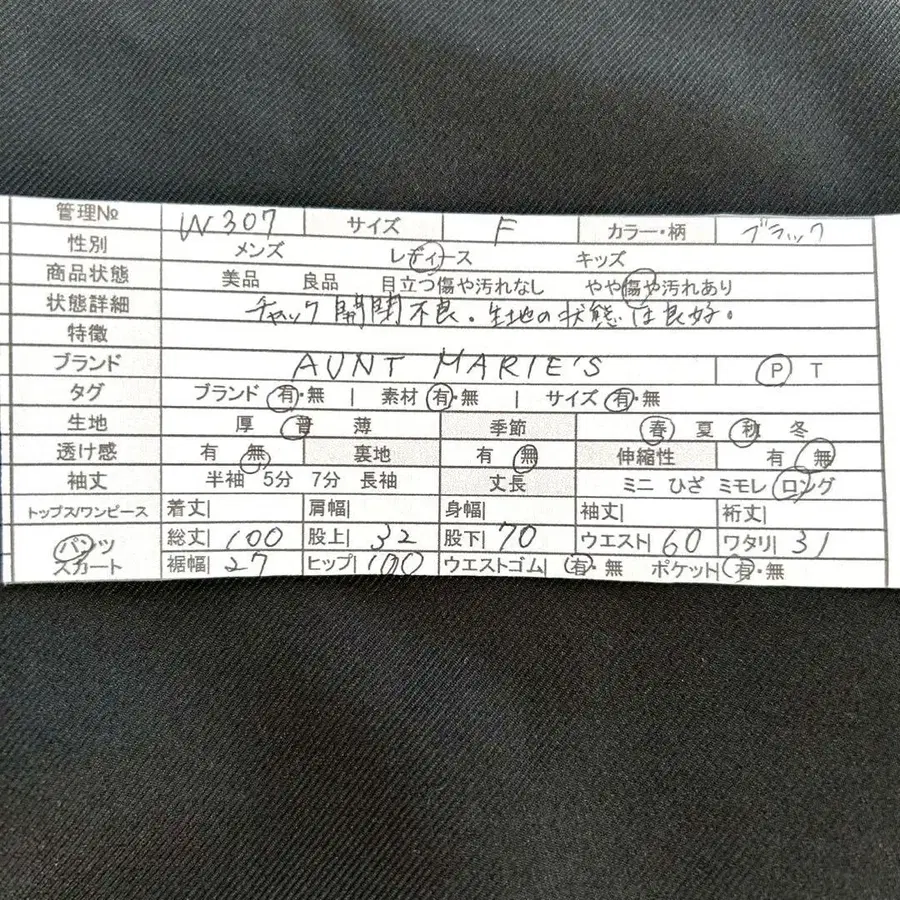 管理№ W307 サイズ F カラー・柄 ブラック
性別 メンズ レディース キッズ
商品状態 美品 良品 目立つ傷や汚れなし やや傷や汚れあり
状態詳細 チャック開閉不良。生地の状態は良好。
特徴
ブランド AUNT MARIE'S P T
タグ ブランド 有・無 | 素材 有・無 | サイズ 有・無
生地 厚 普 薄 季節 春 夏 秋 冬
透け感 有 無 裏地 有 無 伸縮性 有 無
袖丈 半袖 5分 7分 長袖 丈長 ミニ ひざ ミモレ ロング
トップス/ワンピース 着丈| 肩幅| 身幅| 袖丈| 裄丈|
パンツ 総丈| 100 股上| 32 股下| 70 ウエスト| 60 ワタリ| 31
スカート 裾幅| 27 ヒップ| 100 ウエストゴム| 有・無 ポケット| 有・無